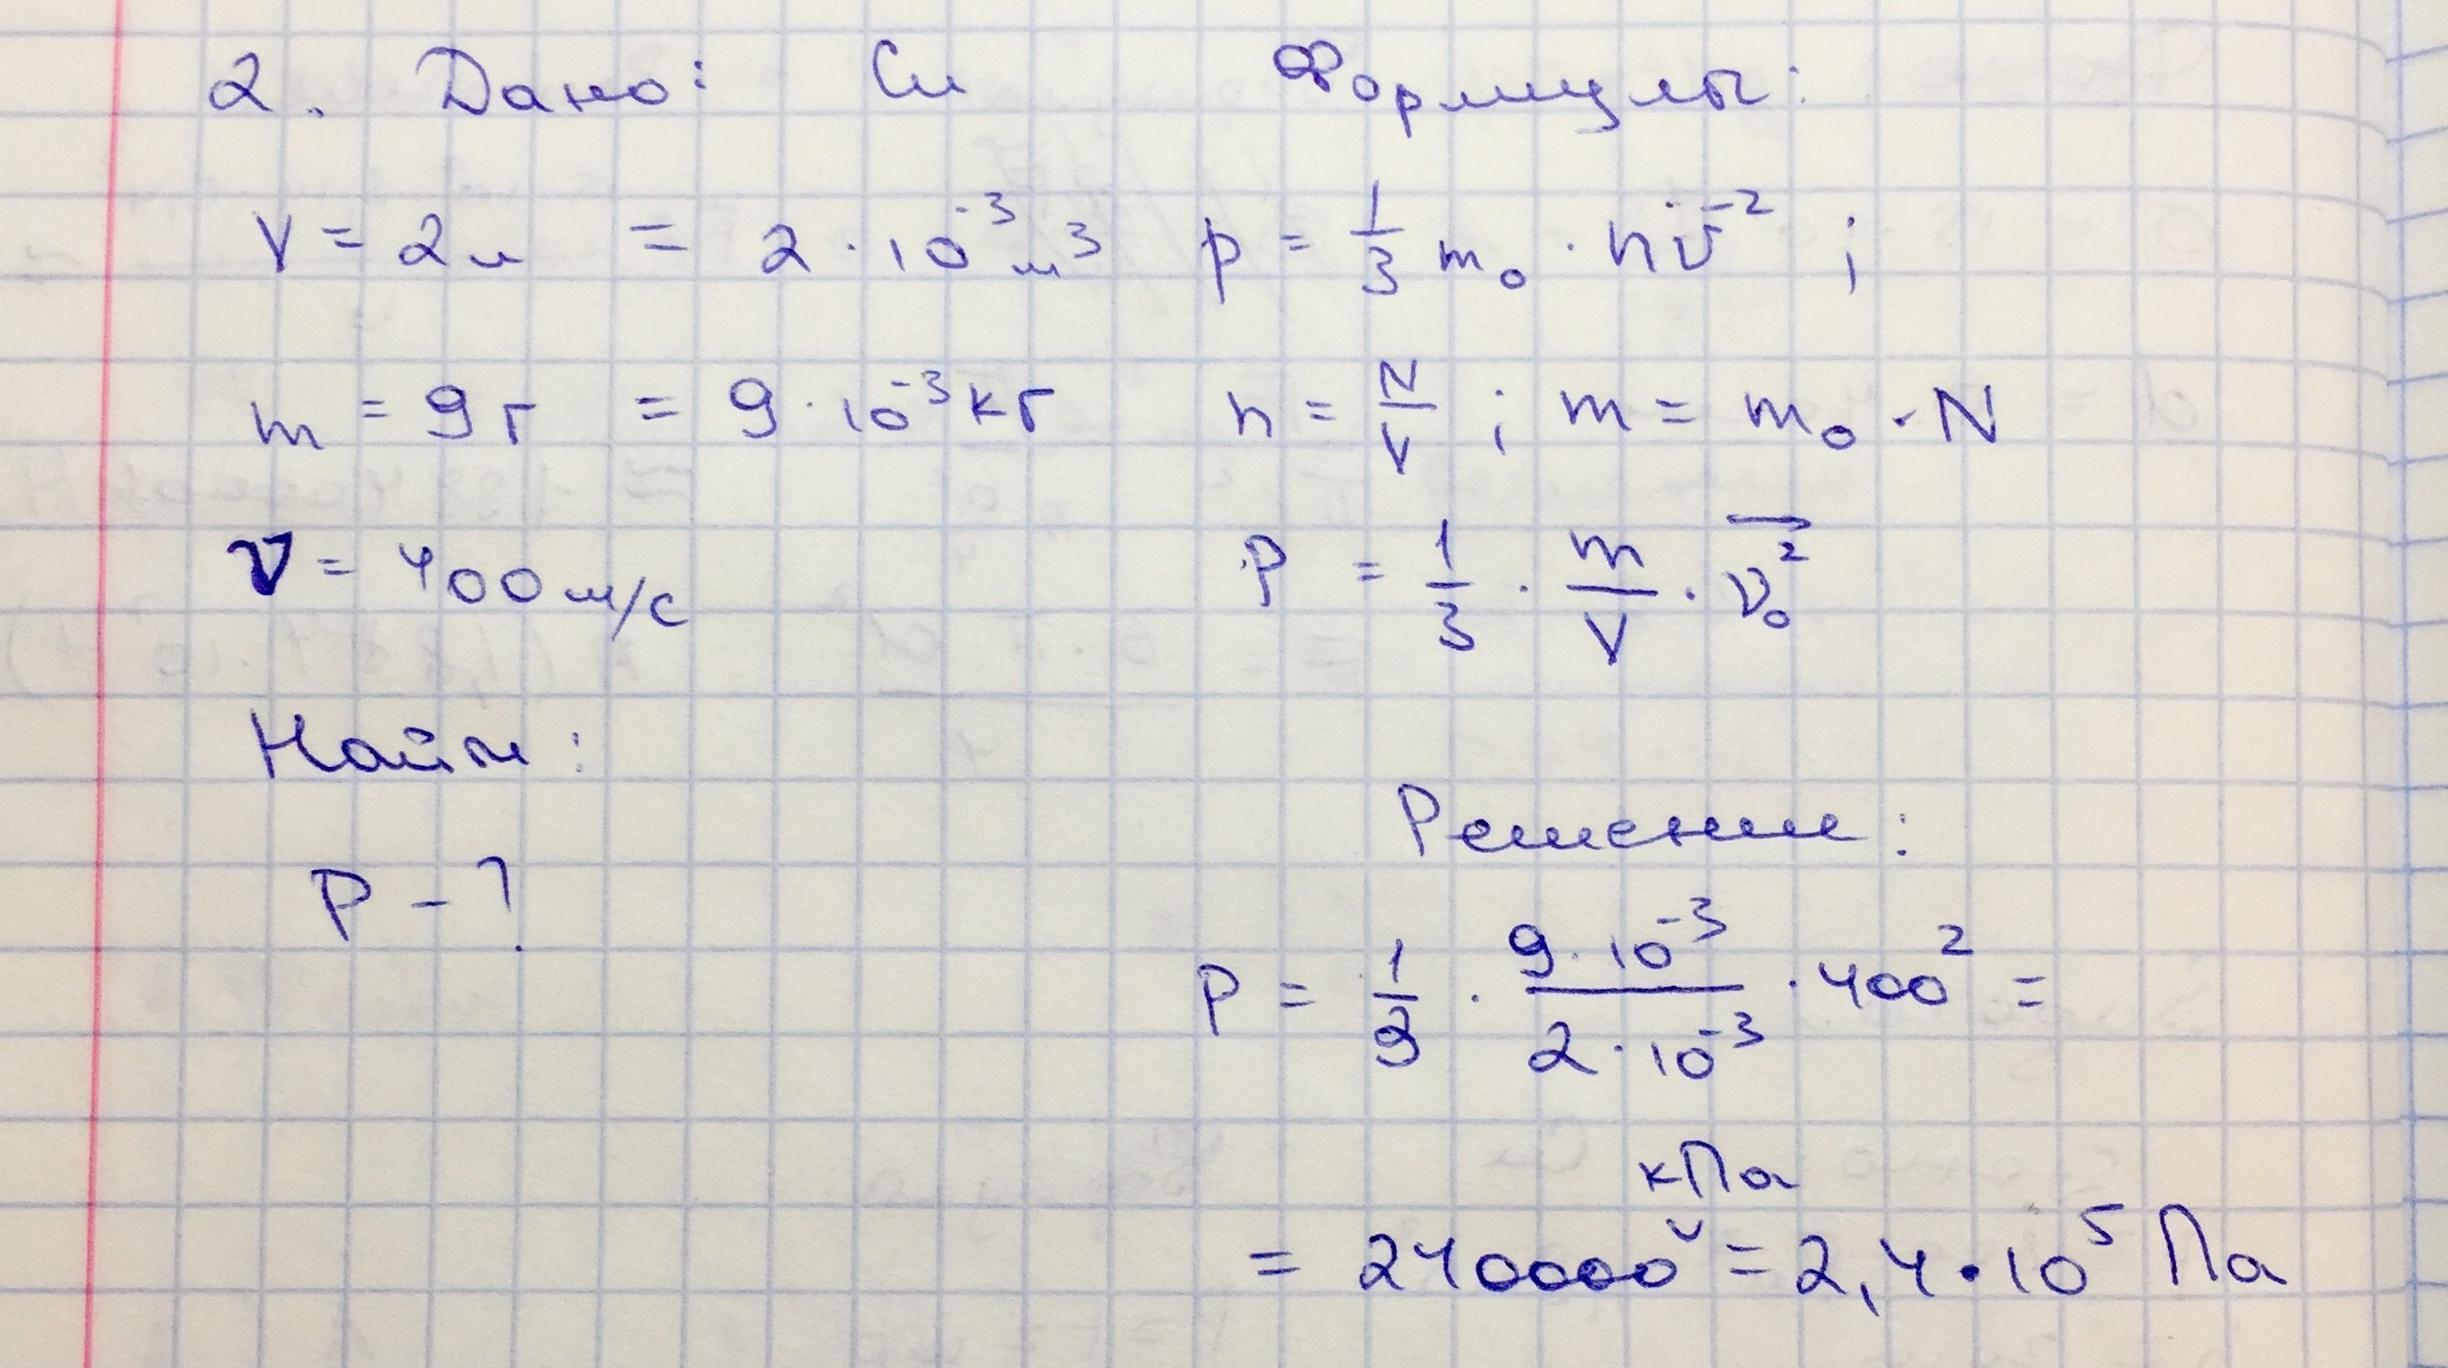 2. Дано: Си Формулы:
V = 2л = 2 · 10⁻³ м³ p = 1/3 m₀ · n v̄² ;
m = 9г = 9 · 10⁻³ кг n = N/V ; m = m₀ · N
v = 400 м/с P = 1/3 · m/V · v₀²
Найти:
P - ?
Решение:
P = 1/3 · 9·10⁻³/2·10⁻³ · 400² =
кПа
= 240000 = 2,4 · 10⁵ Па